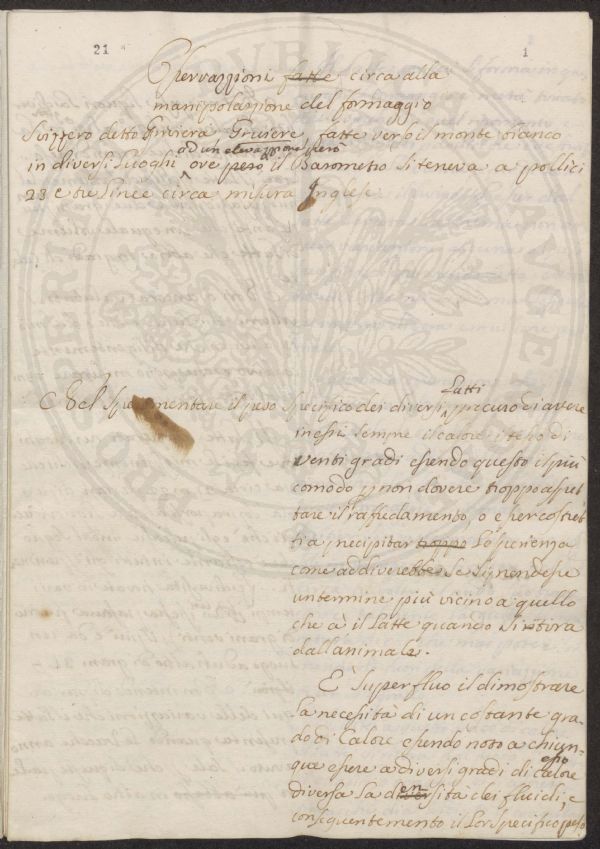 21
1
Osservazzioni fatte circa alla
manipolazione del formaggio
Svizzero detto Gruviera Gruiere, fatte verso il monte bianco
ad un elevazzione però
in diversi Luoghi ove però il Barometro si teneva a pollici
23 e tre Linee circa misura Inglese
Latti
Nel sperimentare il peso specifico dei diversi, procuro di avere
in essi sempre il calore
venti gradi essendo questo il più
comodo p non dovere troppo aspet
tare il rafredamento, o esser costret
ti a precipitar troppo L'esperienza
come addiverebbe se si prendesse
un termine più vicino a quello
che à il Latte quando si ritira
dall'animale.
È superfluo il dimostrare
La necessità di un costante gra
do di Calore essendo noto a chiun-
esso
que essere a diversi gradi di calore
en
diversa La diversità dei fluidi, e
conseguentemento il Lor specifico peso